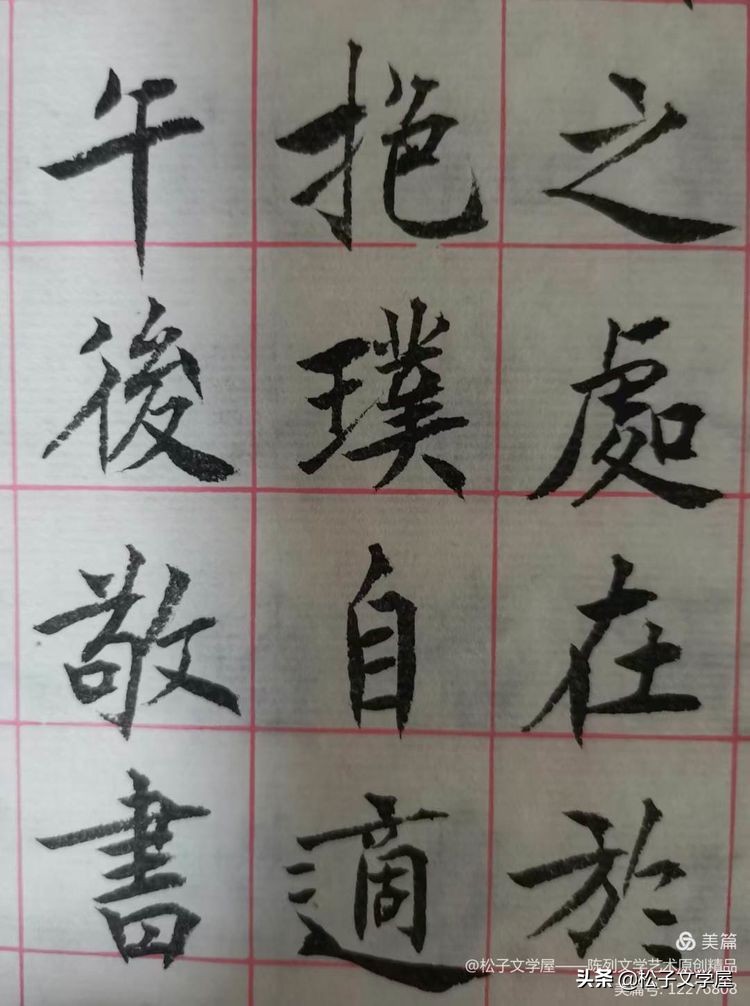 之處在於
抱璞自適
午後敬書
美篇
@松子文学屋——陈列文学艺术原创精品
头条 @松子文学屋
美篇号:12275808